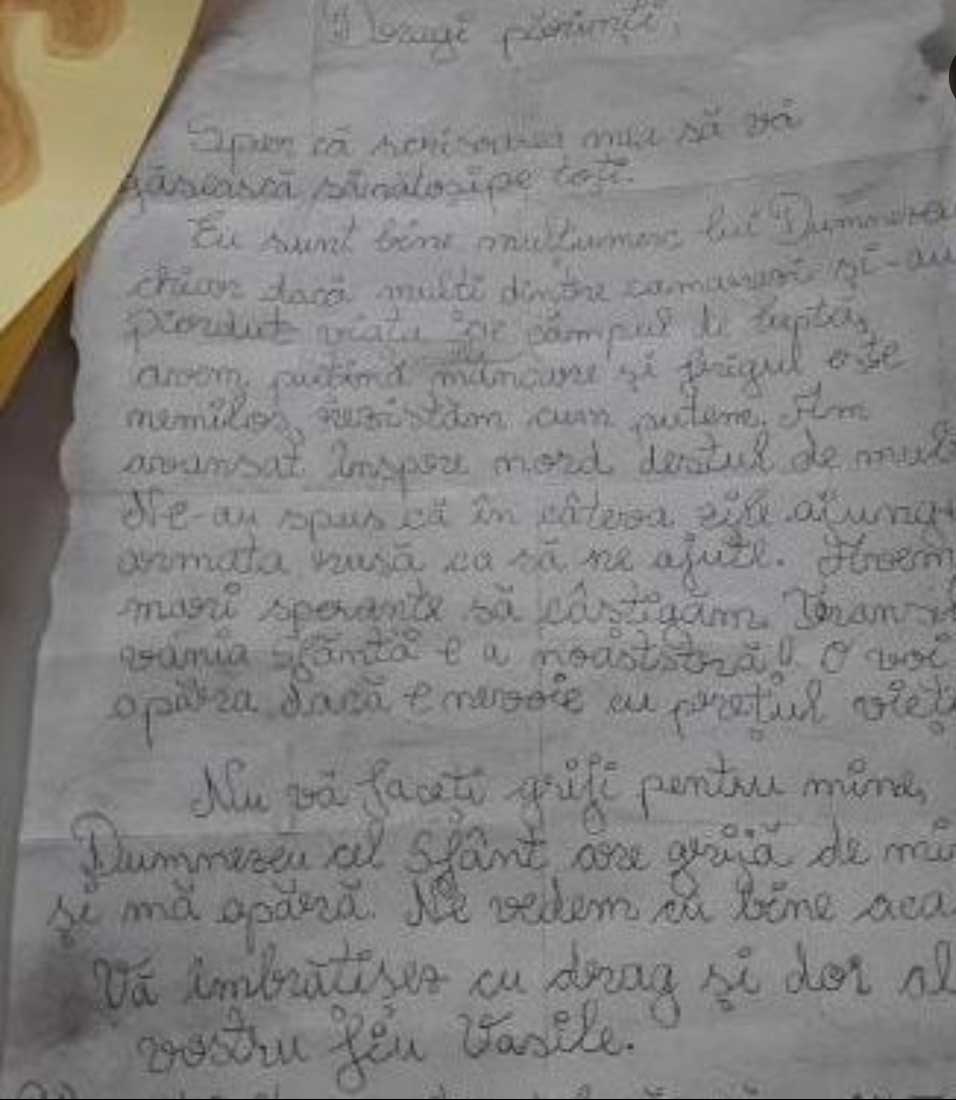 Dragi părinți,
Sper că scrisoarea mea să vă
găsească sănătoși pe toți.
Eu sunt bine mulțumesc lui Dumnezeu
chiar dacă multi dintre camarazi și-au
pierdut viata pe câmpul de luptă,
avem puțină mâncare și frigul este
nemilos, rezistăm cum putem. Am
avansat înspre nord destul de mult
Ne-au spus că în câteva zile ajunge
armata rusă ca să ne ajute. Avem
mari speranțe să câștigăm. Transil
vania sfântă e a noaststră! O voi
apăra dacă e nevoie cu prețul vieți
Nu vă faceți griji pentru mine,
Dumnezeu cel Sfânt are grijă de mi
și mă apără. Ne vedem cu bine aca
Vă îmbrățișez cu drag și dor al
vostru fiu Vasile.